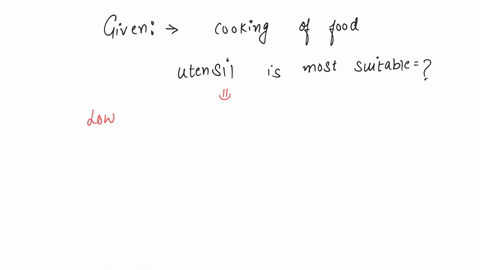 Given: → cooking of food
utensil is most suitable = ?
Low